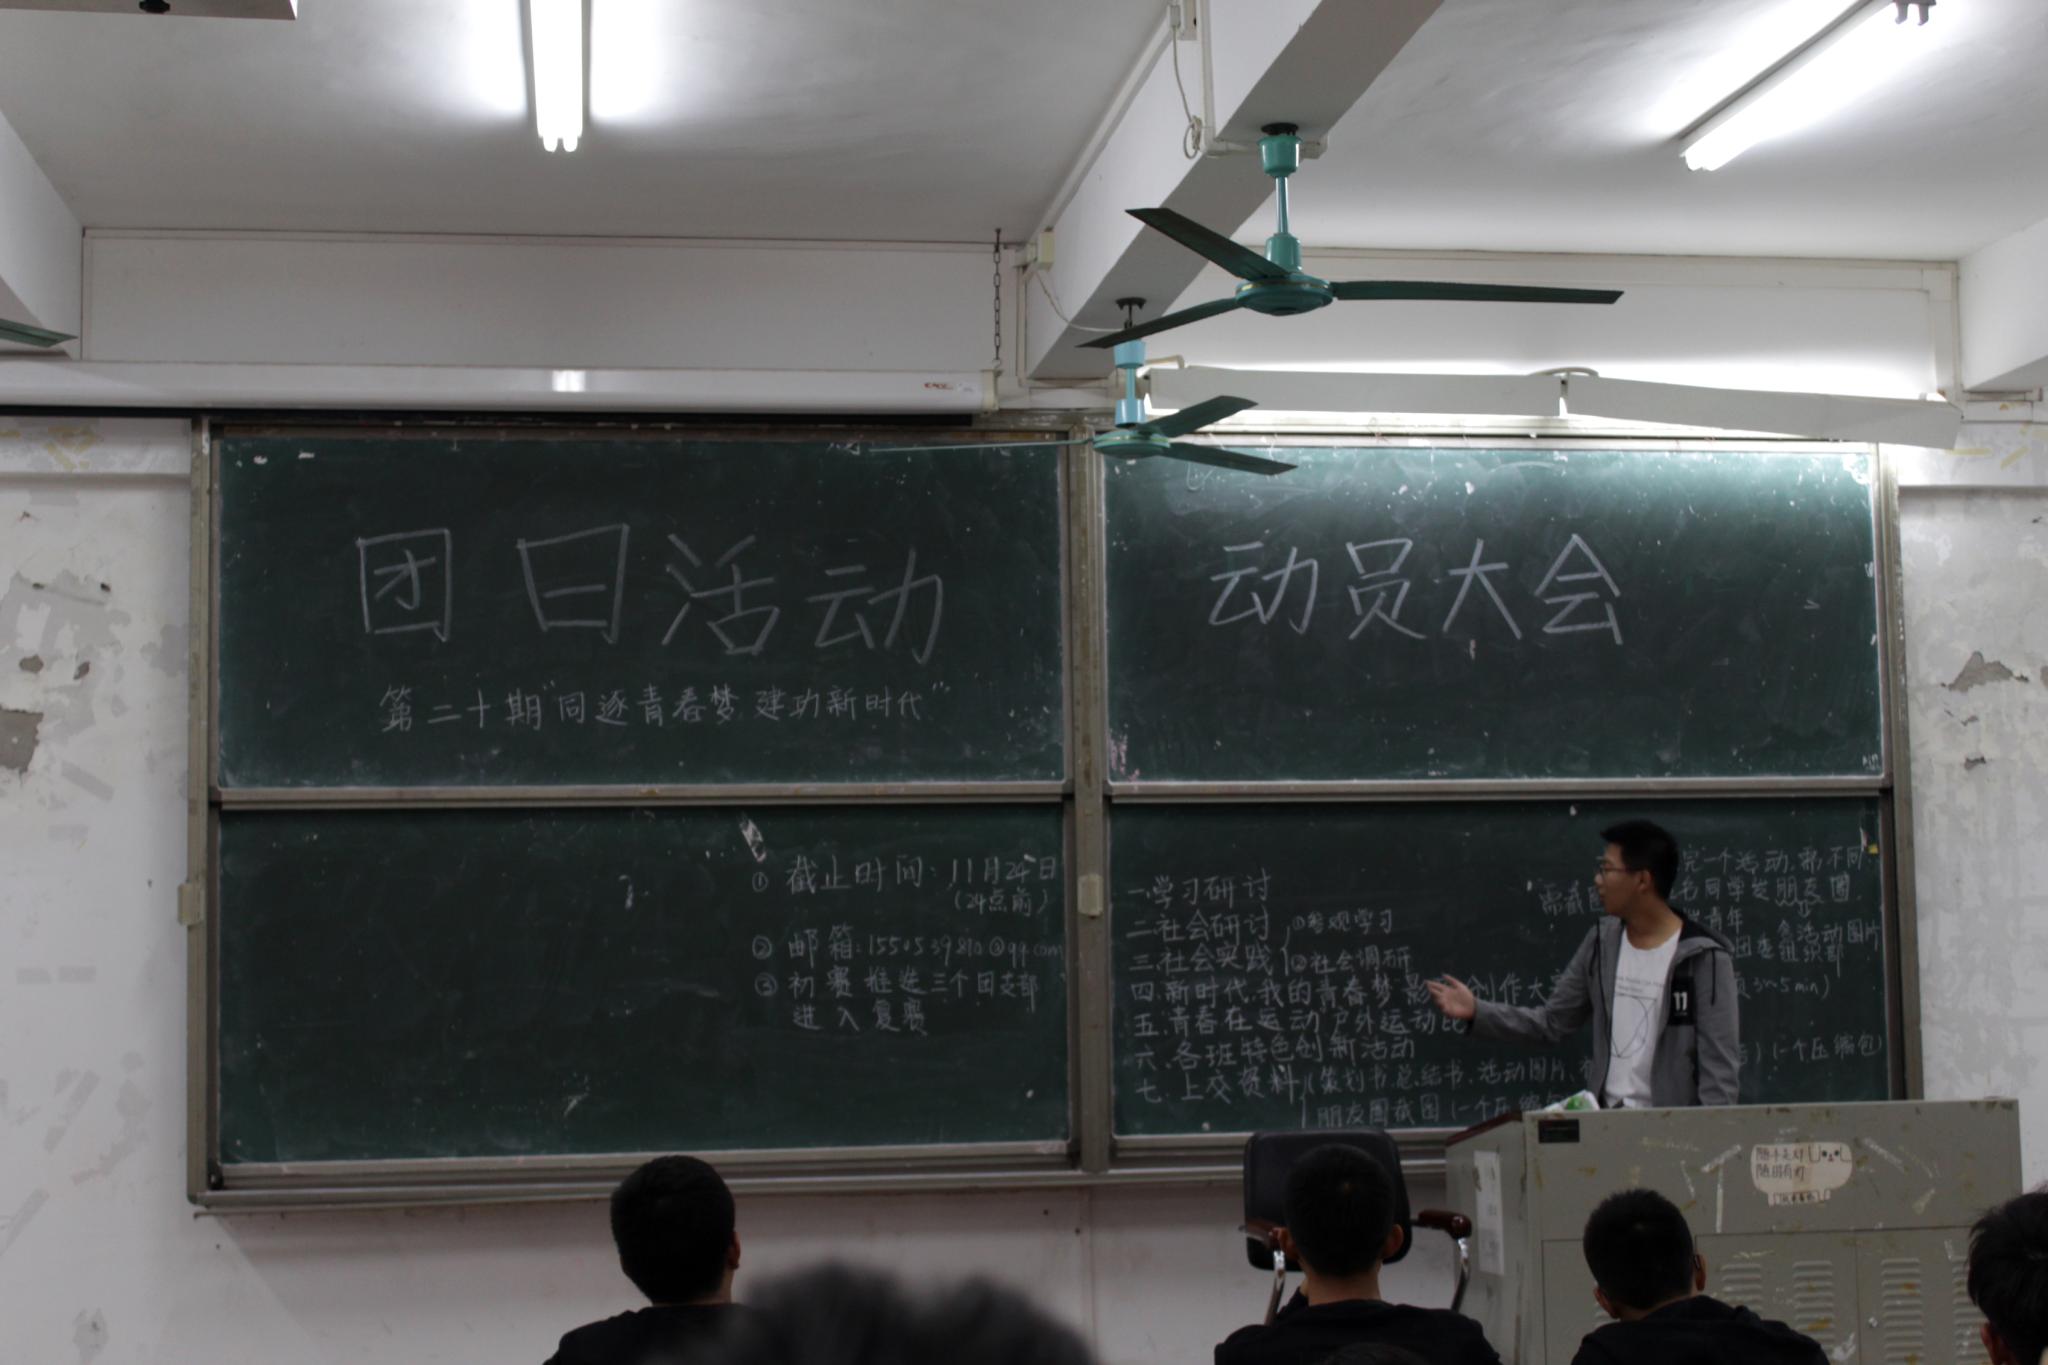 团日活动
动员大会
第二十期"同逐青春梦 建功新时代"
① 截止时间：11月24日
（24点前）
② 邮箱：1550539810@qq.com
③ 初赛推选三个团支部
进入复赛
一.学习研讨
二.社会研讨
三.社会实践
①参观学习
②社会调研
四.新时代.我的青春梦 创作大
五.青春在运动 户外运动比
六.各班特色创新活动
七.上交资料
策划书.总结书.活动图片.
朋友圈截图（一个压缩包
完一个活动.需不同
需截 名同学发朋友圈.
青年
活动图片
组织部
3~5min）
）（一个压缩包）
随手关灯
随用有灯
11